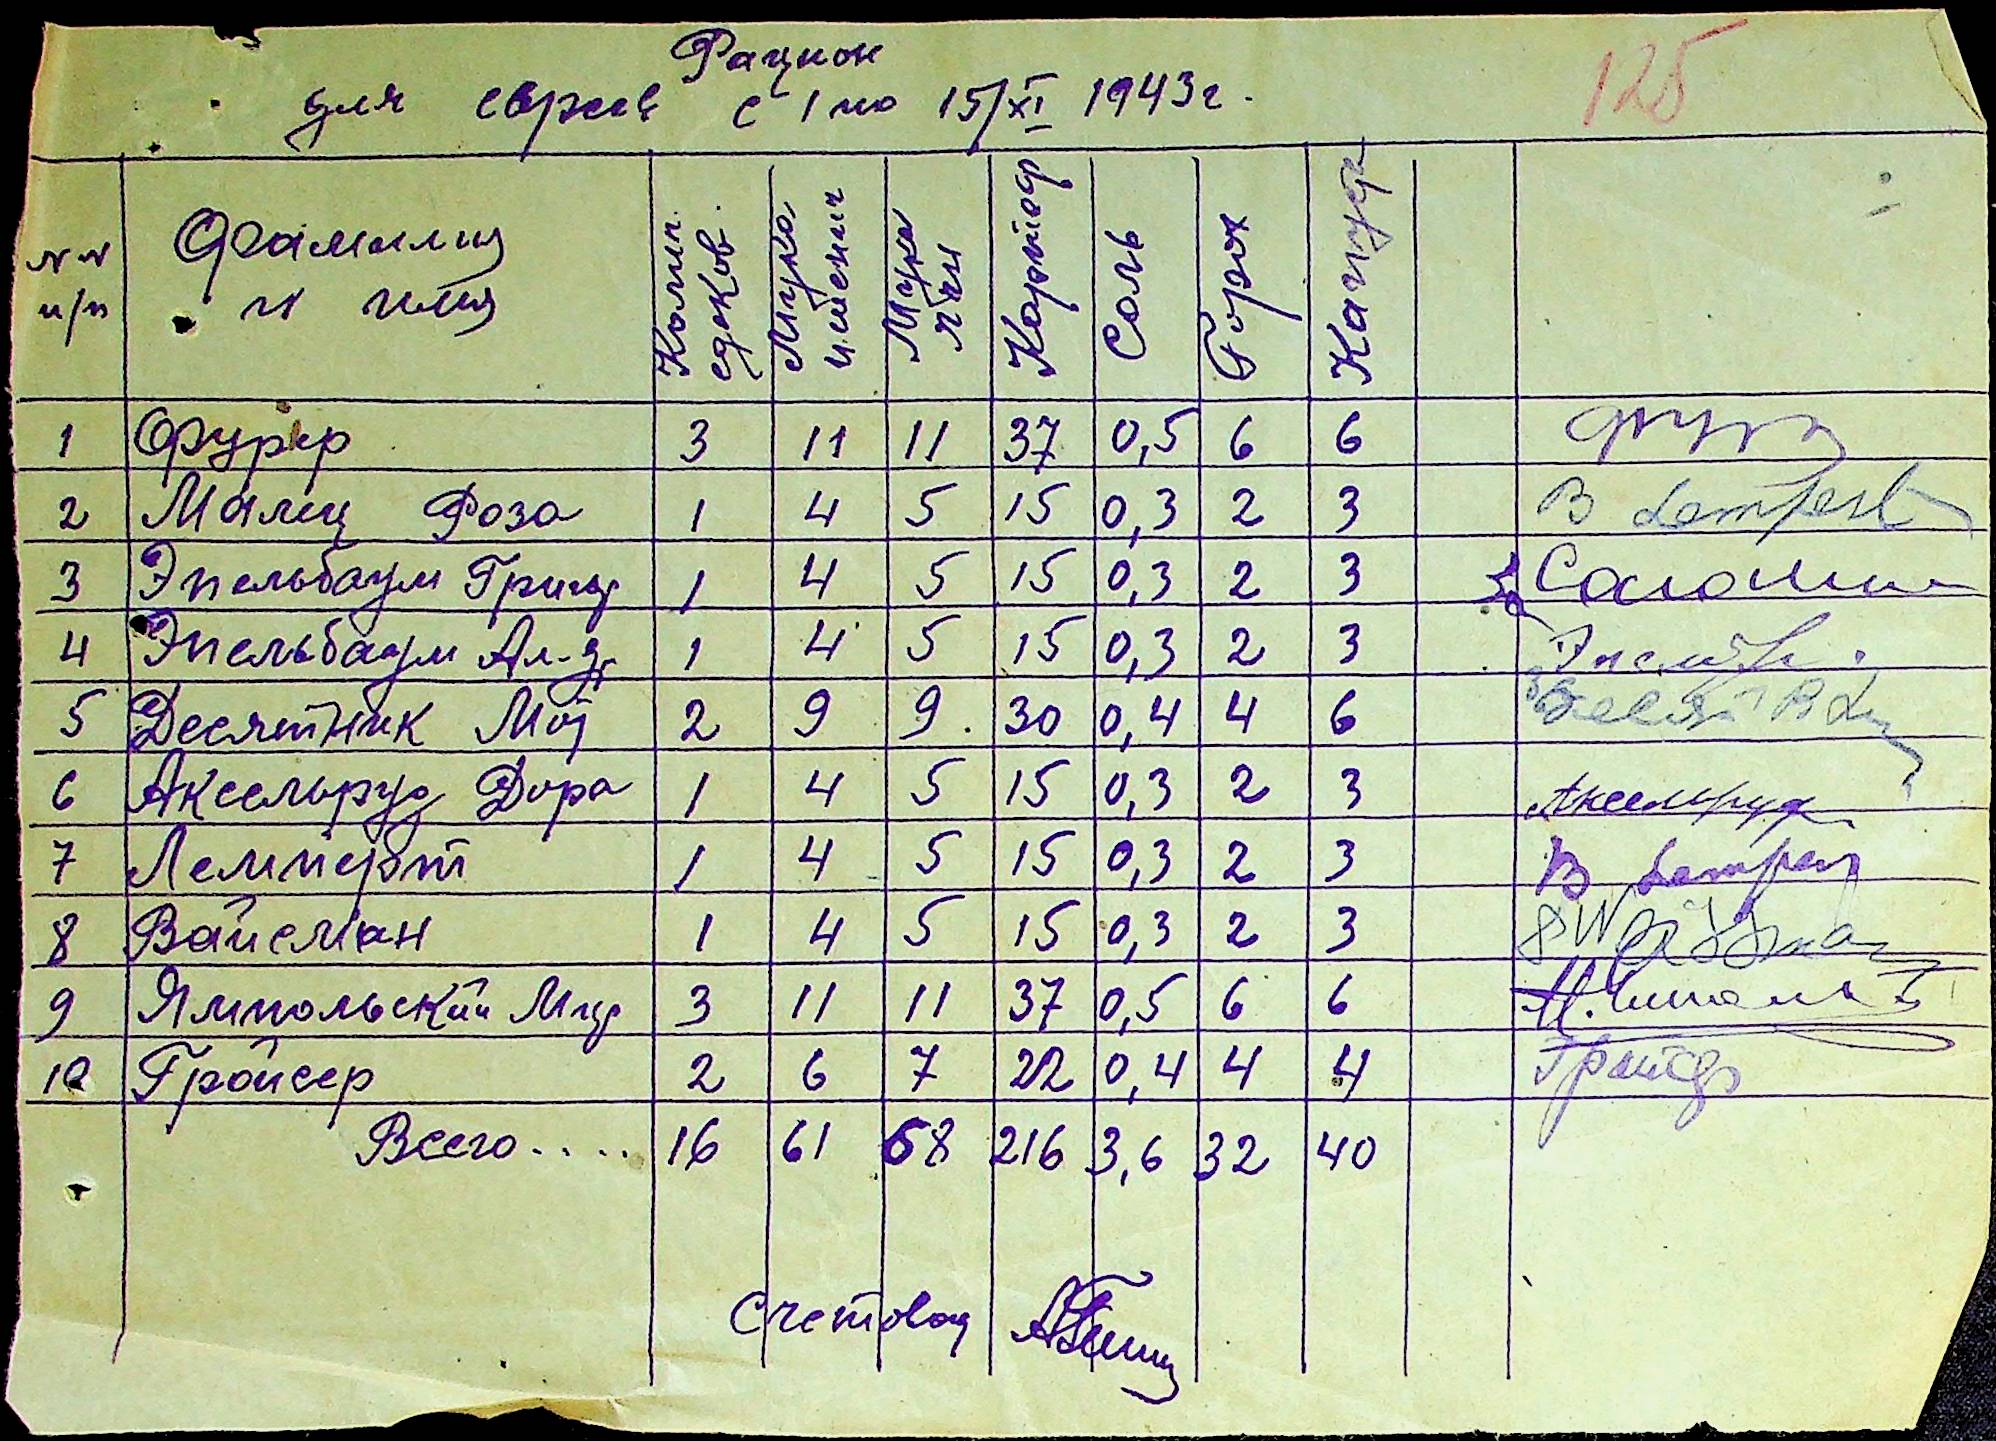 Рацион
для евреев с 1 по 15/XI 1943 г.
125
NN п/п Фамилия и имя Колич. едоков. Мука пшенич Мука ячн Картоф Соль Горох Капуста
1 Фурер 3 11 11 37 0,5 6 6
2 Малец Роза 1 4 5 15 0,3 2 3 B Lempert
3 Эпельбаум Григор 1 4 5 15 0,3 2 3
4 Эпельбаум Ал-др 1 4 5 15 0,3 2 3
5 Десятник Мой 2 9 9. 30 0,4 4 6
6 Аксельруд Дора 1 4 5 15 0,3 2 3 Аксельруд
7 Лемперт 1 4 5 15 0,3 2 3 B Lempert
8 Вайсман 1 4 5 15 0,3 2 3
9 Ямпольский 3 11 11 37 0,5 6 6
10 Гройсер 2 6 7 22 0,4 4 4 Гройсер
Всего..... 16 61 68 216 3,6 32 40
Счетовод